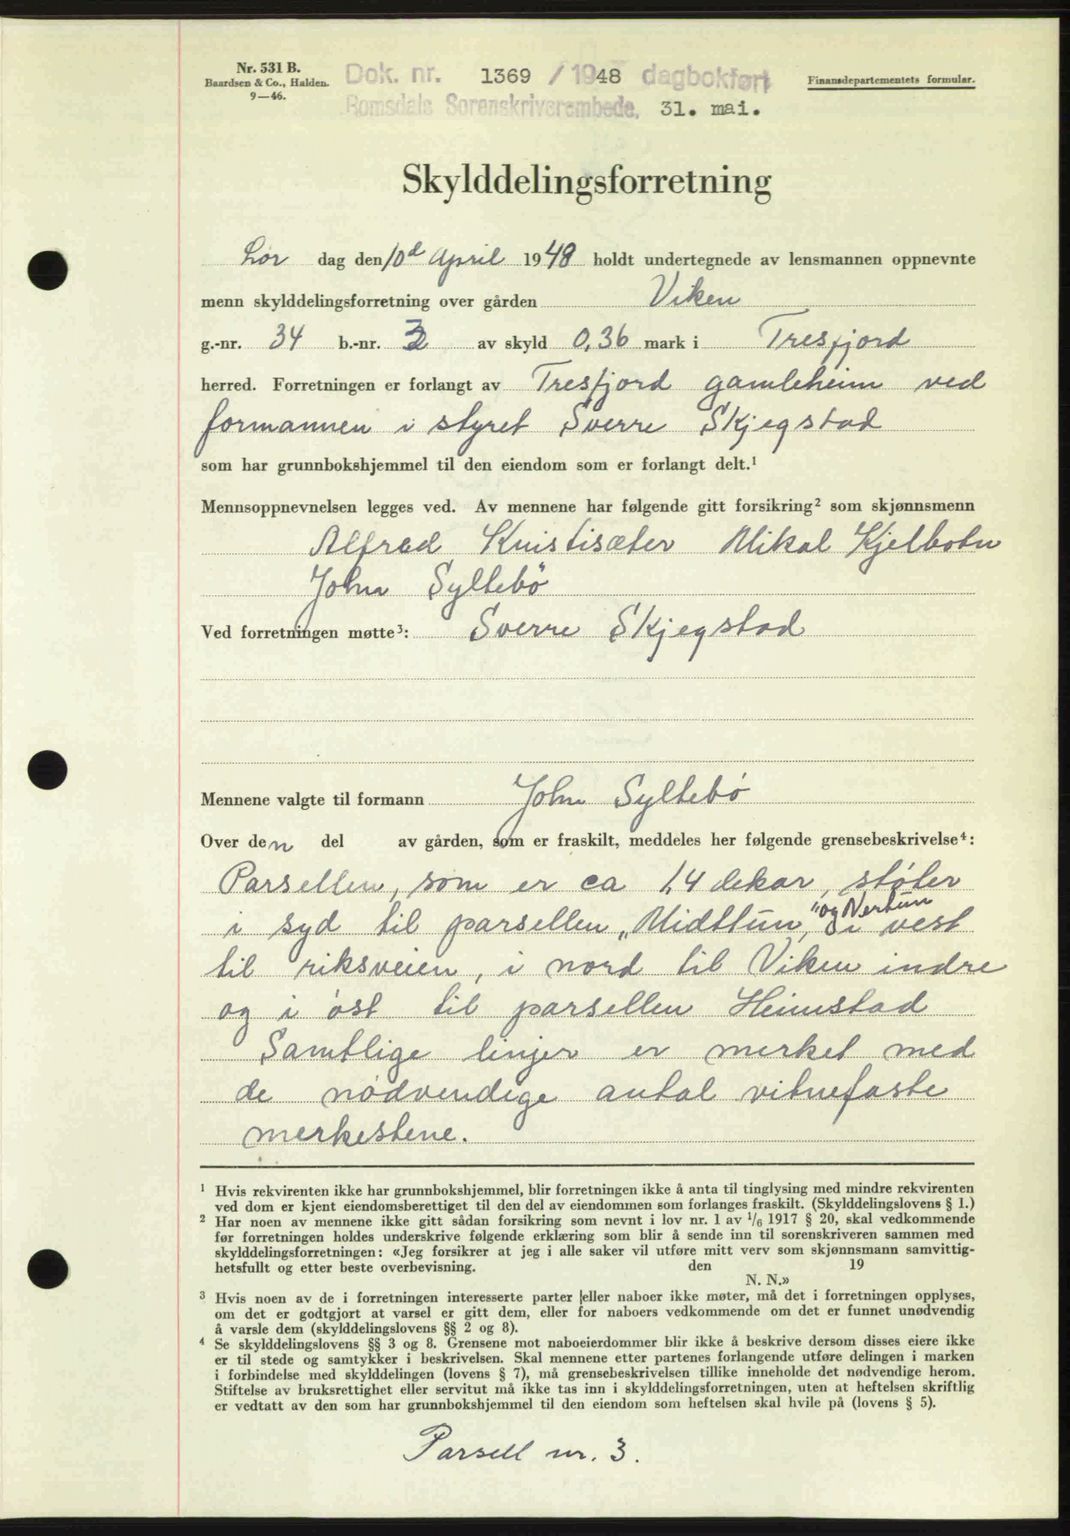 Nr. 531 B.
Baardsen & Co., Halden.
9—46.
Dok. nr. 1369 / 1948 dagbokført
Romsdals Sorenskriverembede, 31. mai.
Finansdepartementets formular.
Skylddelingsforretning
Lør dag den 10d April 1948 holdt undertegnede av lensmannen oppnevnte
menn skylddelingsforretning over gården Viken
g.-nr. 34 b.-nr. 3 av skyld 0,36 mark i Tresfjord
herred. Forretningen er forlangt av Tresfjord gamleheim ved
formannen i styret Sverre Skjegstad
som har grunnbokshjemmel til den eiendom som er forlangt delt.¹
Mennsoppnevnelsen legges ved. Av mennene har følgende gitt forsikring² som skjønnsmenn
Alfred Knistisæter Mikal Kjelbotn
John Syltebö
Ved forretningen møtte³: Sverre Skjegstad
Mennene valgte til formann John Syltebö
Over den del av gården, som er fraskilt, meddeles her følgende grensebeskrivelse⁴:
Parsellen, som er ca 1,4 dekar, støter
i syd til parsellen „Midttun," og Nertun i vest
til riksveien, i nord til Viken indre
og i öst til parsellen Heimstad
Samtlige linjer er merket med
de nödvendige antal vitnefaste
merkestene.
¹ Hvis rekvirenten ikke har grunnbokshjemmel, blir forretningen ikke å anta til tinglysing med mindre rekvirenten
ved dom er kjent eiendomsberettiget til den del av eiendommen som forlanges fraskilt. (Skylddelingslovens § 1.)
² Har noen av mennene ikke gitt sådan forsikring som nevnt i lov nr. 1 av 1/6 1917 § 20, skal vedkommende
før forretningen holdes underskrive følgende erklæring som blir å sende inn til sorenskriveren sammen med
skylddelingsforretningen: «Jeg forsikrer at jeg i alle saker vil utføre mitt verv som skjønnsmann samvittig-
hetsfullt og etter beste overbevisning. den 19
N. N.»
³ Hvis noen av de i forretningen interesserte parter eller naboer ikke møter, må det i forretningen opplyses,
om det er godtgjort at varsel er gitt dem, eller for naboers vedkommende om det er funnet unødvendig
å varsle dem (skylddelingslovens §§ 2 og 8).
⁴ Se skylddelingslovens §§ 3 og 8. Grensene mot naboeierdommer blir ikke å beskrive dersom disses eiere ikke
er til stede og samtykker i beskrivelsen. Skal mennene etter partenes forlangende utføre delingen i marken
i forbindelse med skylddelingen (lovens § 7), må grensebeskrivelsen tillike inneholde det nødvendige herom.
Stiftelse av bruksrettighet eller servitut må ikke tas inn i skylddelingsforretningen, uten at heftelsen skriftlig
er vedtatt av den som har grunnbokshjemmel til den eiendom som heftelsen skal hvile på (lovens § 5).
Parsell nr. 3.